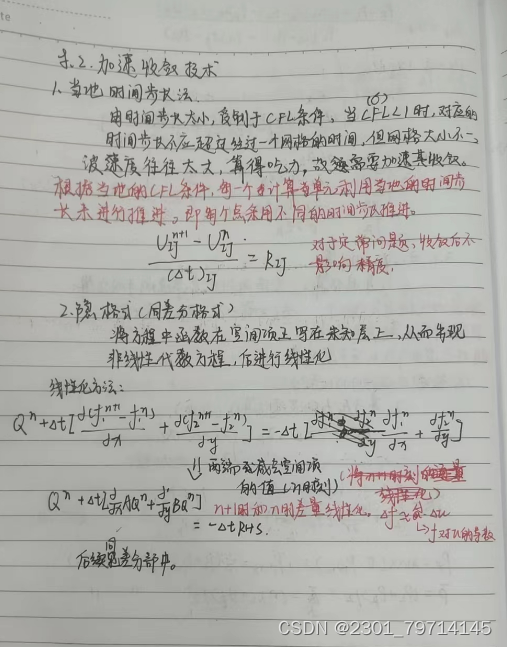 2.加速收敛技术
1.当地时间步长法.
由时间步长大小,受制于CFL条件,当CFL<1时,对应的
(σ)
时间步长不应超过经过一个网格的时间,但网格大小不一,
波速度往往太大,算得吃力,故需要加速其收敛。
根据当地的CFL条件,每一个计算单元利用当地的时间步
长来进行推进。即每个点采用不同的时间步长推进。
(U_{IJ}^{n+1} - U_{IJ}^{n}) / (Δt)_{IJ} = R_{IJ}
对于定常问题,收敛后不
影响精度.
2.隐格式(同差分格式)
将方程中函数在空间项上写在未知层上,从而出现
非线性代数方程,后进行线性化
线性化方法:
Q^n + Δt[d(f_1^{n+1} - f_1^n)/dx + d(f_2^{n+1} - f_2^n)/dy] = -Δt[df_1^n/dx + df_2^n/dy]
⇓ 两端减去空间项
的值(n时刻)
Q^n + Δt[d/dx AQ^n + d/dy BQ^n]
= -Δt RHS.
n+1时和n的差量线性化.
→ f对u的导数
后续同差分部中。
CSDN @2301_79714145